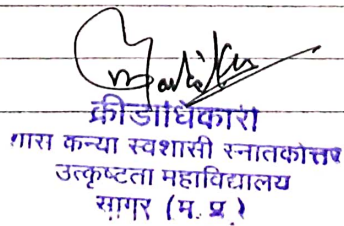 क्रीडाधिकारी
शास कन्या स्वशासी स्नातकोत्तर
उत्कृष्टता महाविद्यालय
सागर (म. प्र.)